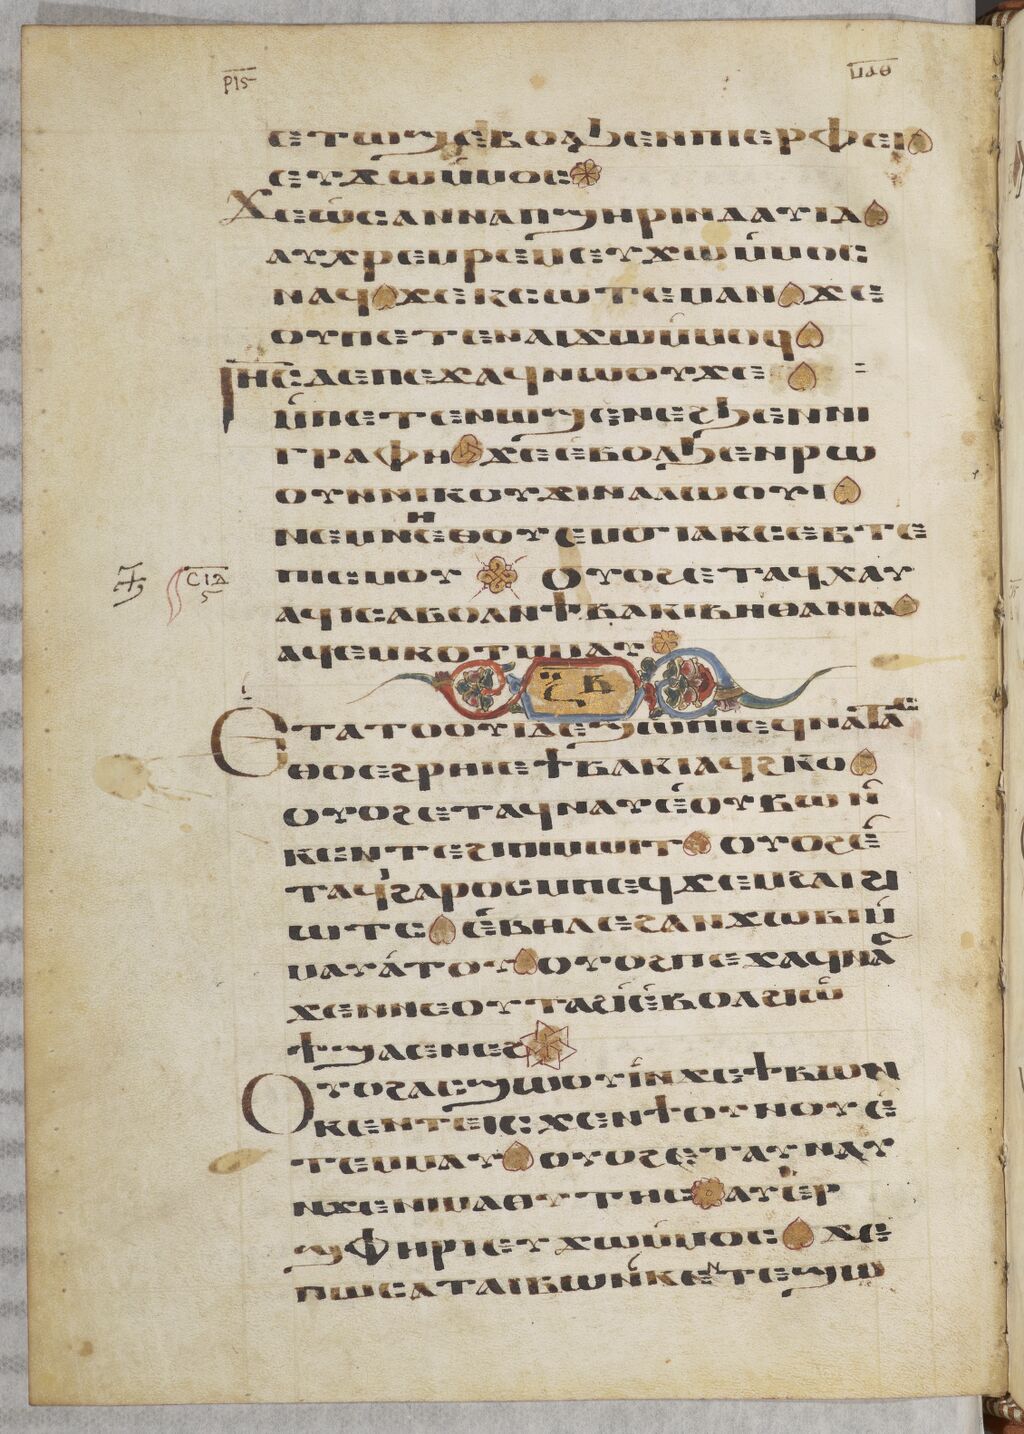 ⲣⲓⲋ ⲙⲁⲑ
ⲉⲧⲱϣ ⲉⲃⲟⲗϧⲉⲛⲡⲓⲉⲣⲫⲉⲓ
ⲉⲩϫⲱⲙ̇ⲙⲟⲥ
ϫⲉⲱ̇ⲥⲁⲛⲛⲁⲡϣⲏⲣⲓⲛⲇⲁⲩⲓⲇ
ⲁⲩⲭⲣⲉⲙⲣⲉⲙⲉⲩϫⲱⲙ̇ⲙⲟⲥ
ⲛⲁϥϫⲉⲕⲥⲱⲧⲉⲙⲁⲛϫⲉ
ⲟⲩⲡⲉⲧⲉⲛⲁⲓϫⲱⲙ̇ⲙⲟϥ
ⲓⲏⲥⲇⲉⲡⲉϫⲁϥⲛⲱⲟⲩϫⲉ
ⲙ̇ⲡⲉⲧⲉⲛⲱϣⲉⲛⲉϩϧⲉⲛⲛⲓ
ⲅⲣⲁⲫⲏϫⲉⲉ̇ⲃⲟⲗϧⲉⲛⲣⲱ
ⲟⲩⲛⲛⲓⲕⲟⲩϫⲓⲛⲁⲗⲱⲟⲩⲓ
ⲛⲉⲙⲛⲏⲉⲑⲟⲩⲉⲙϭⲓⲁⲕⲥⲉⲃⲧⲉ
ⲡⲓⲥⲙⲟⲩ ⲟⲩⲟϩⲉⲧⲁϥⲭⲁⲩ
ⲥⲓⲇ
ⲋ
ⲁϥⲓⲥⲁⲃⲟⲗⲛϯⲃⲁⲕⲓⲃⲏⲑⲁⲛⲓⲁ
ⲁϥⲉⲛⲕⲟⲧⲙ̇ⲙⲁⲩ
ⲝⲃ
ⲉⲧⲁⲧⲟⲟⲩⲓⲇⲉϣⲱⲡⲓⲉϥⲛⲁⲧⲁⲥ
ⲑⲟⲉϩⲣⲏⲓⲉϯⲃⲁⲕⲓⲁϥϩⲕⲟ
ⲟⲩⲟϩⲉⲧⲁϥⲛⲁⲩⲉ̇ⲟⲩⲃⲱⲛ̇
ⲕⲉⲛⲧⲉϩⲓⲡⲓⲙⲱⲓⲧⲟⲩⲟϩⲉ̇
ⲧⲁϥϩⲁⲣⲟⲥⲙⲡⲉϥϫⲉⲙϩⲗⲓϩⲓ
ⲱⲧⲥⲉ̇ⲃⲏⲗⲉϩⲁⲛϫⲱⲃⲓⲙ̇
ⲙⲁⲩⲁ̇ⲧⲟⲩⲟⲩⲟϩⲡⲉϫⲁϥⲛⲁⲥ
ϫⲉⲛⲛⲉⲟⲩⲧⲁϩⲓⲉ̇ⲃⲟⲗϩⲓⲱ̇
ϯϣⲁⲉⲛⲉϩ
ⲟⲩⲟϩⲁⲥϣⲱⲟⲩⲓⲛ̇ϫⲉϯⲃⲱⲛ
ⲕⲉⲛⲧⲉⲓⲥϫⲉⲛϯⲟⲩⲛⲟⲩⲉ̇
ⲧⲉⲙⲙⲁⲩⲟⲩⲟϩⲉⲧⲁⲩⲛⲁⲩ
ⲛϫⲉⲛⲓⲙⲁⲑⲩⲧⲏⲥⲁⲩⲉ̇ⲣ
ϣⲫⲏⲣⲓⲉⲩϫⲱⲙ̇ⲙⲟⲥϫⲉ
ⲡⲱⲥⲁⲧⲁⲓⲃⲱⲛ̇ⲕⲉⲛⲧⲉϣⲱ